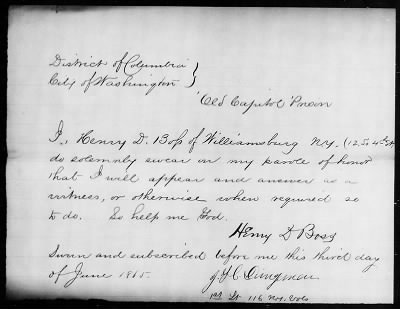 District of Columbia }
City of Washington }
Old Capitol Prison
I, Henry D. Boss of Williamsburg N.Y. (12 So 4th St)
do solemnly swear on my parole of honor
that I will appear and answer as a
witness, or otherwise when required so
to do. So help me God.
Henry D Boss
Sworn and subscribed before me this third day
of June 1865.
J. C.
1st Lt. 116 N.Y. Vols